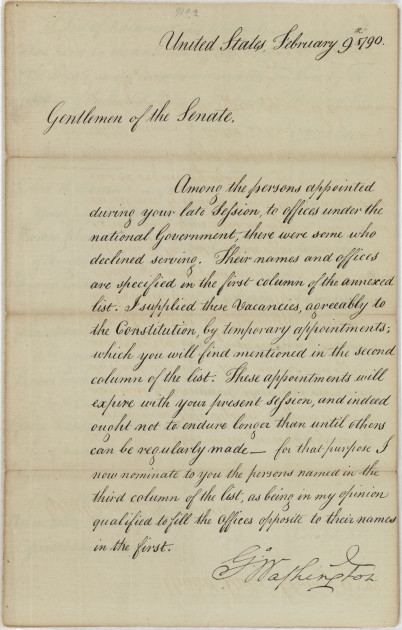 United States, February 9th 1790.
Gentlemen of the Senate.
Among the persons appointed
during your late Session, to offices under the
national Government, there were some who
declined serving. Their names and offices
are specified in the first column of the annexed
list. I supplied these Vacancies, agreeably to
the Constitution, by temporary appointments;
which you will find mentioned in the second
column of the list. These appointments will
expire with your present Session, and indeed
ought not to endure longer than until others
can be regularly made — for that purpose I
now nominate to you the persons named in the
third column of the list, as being in my opinion
qualified to fill the offices opposite to their names
in the first.
Go Washington